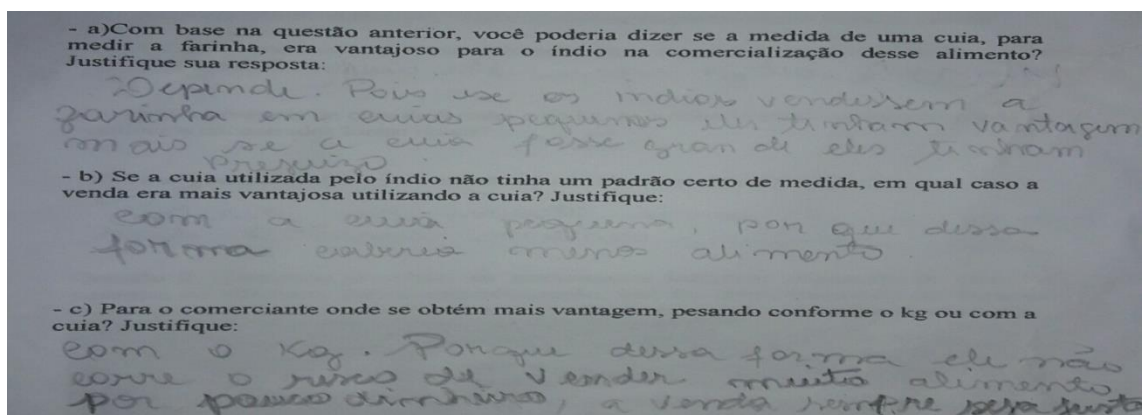 - a)Com base na questão anterior, você poderia dizer se a medida de uma cuia, para
medir a farinha, era vantajoso para o índio na comercialização desse alimento?
Justifique sua resposta:
Depende. Pois se os indios vendessem a
farinha em cuias pequenas eles tinham vantagem
mais se a cuia fosse grande eles tinham
prejuizo.
- b) Se a cuia utilizada pelo índio não tinha um padrão certo de medida, em qual caso a
venda era mais vantajosa utilizando a cuia? Justifique:
com a cuia pequena, por que dessa
forma caberia menos alimento.
- c) Para o comerciante onde se obtém mais vantagem, pesando conforme o kg ou com a
cuia? Justifique:
com o Kg. Porque dessa forma ele não
corre o risco de vender muito alimento
por pouco dinheiro, a venda sempre sera justa